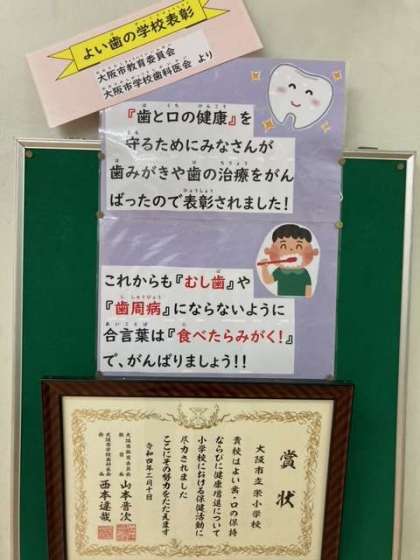 よい歯の学校表彰
大阪市教育委員会
大阪市学校歯科医会 より
『歯と口の健康』を
守るためにみなさんが
歯みがきや歯の治療をがん
ばったので表彰されました!
これからも『むし歯』や
『歯周病』にならないように
合言葉は『食べたらみがく!』
で、がんばりましょう!!
賞状
大阪市立栄小学校
貴校はよい歯・口の保持
ならびに健康増進について
小学校における保健活動に
尽力されました
ここにその努力をたたえます
令和四年二月十日
大阪市教育委員会
教育長 山本晋次
大阪市学校歯科医会
会長 西本達哉